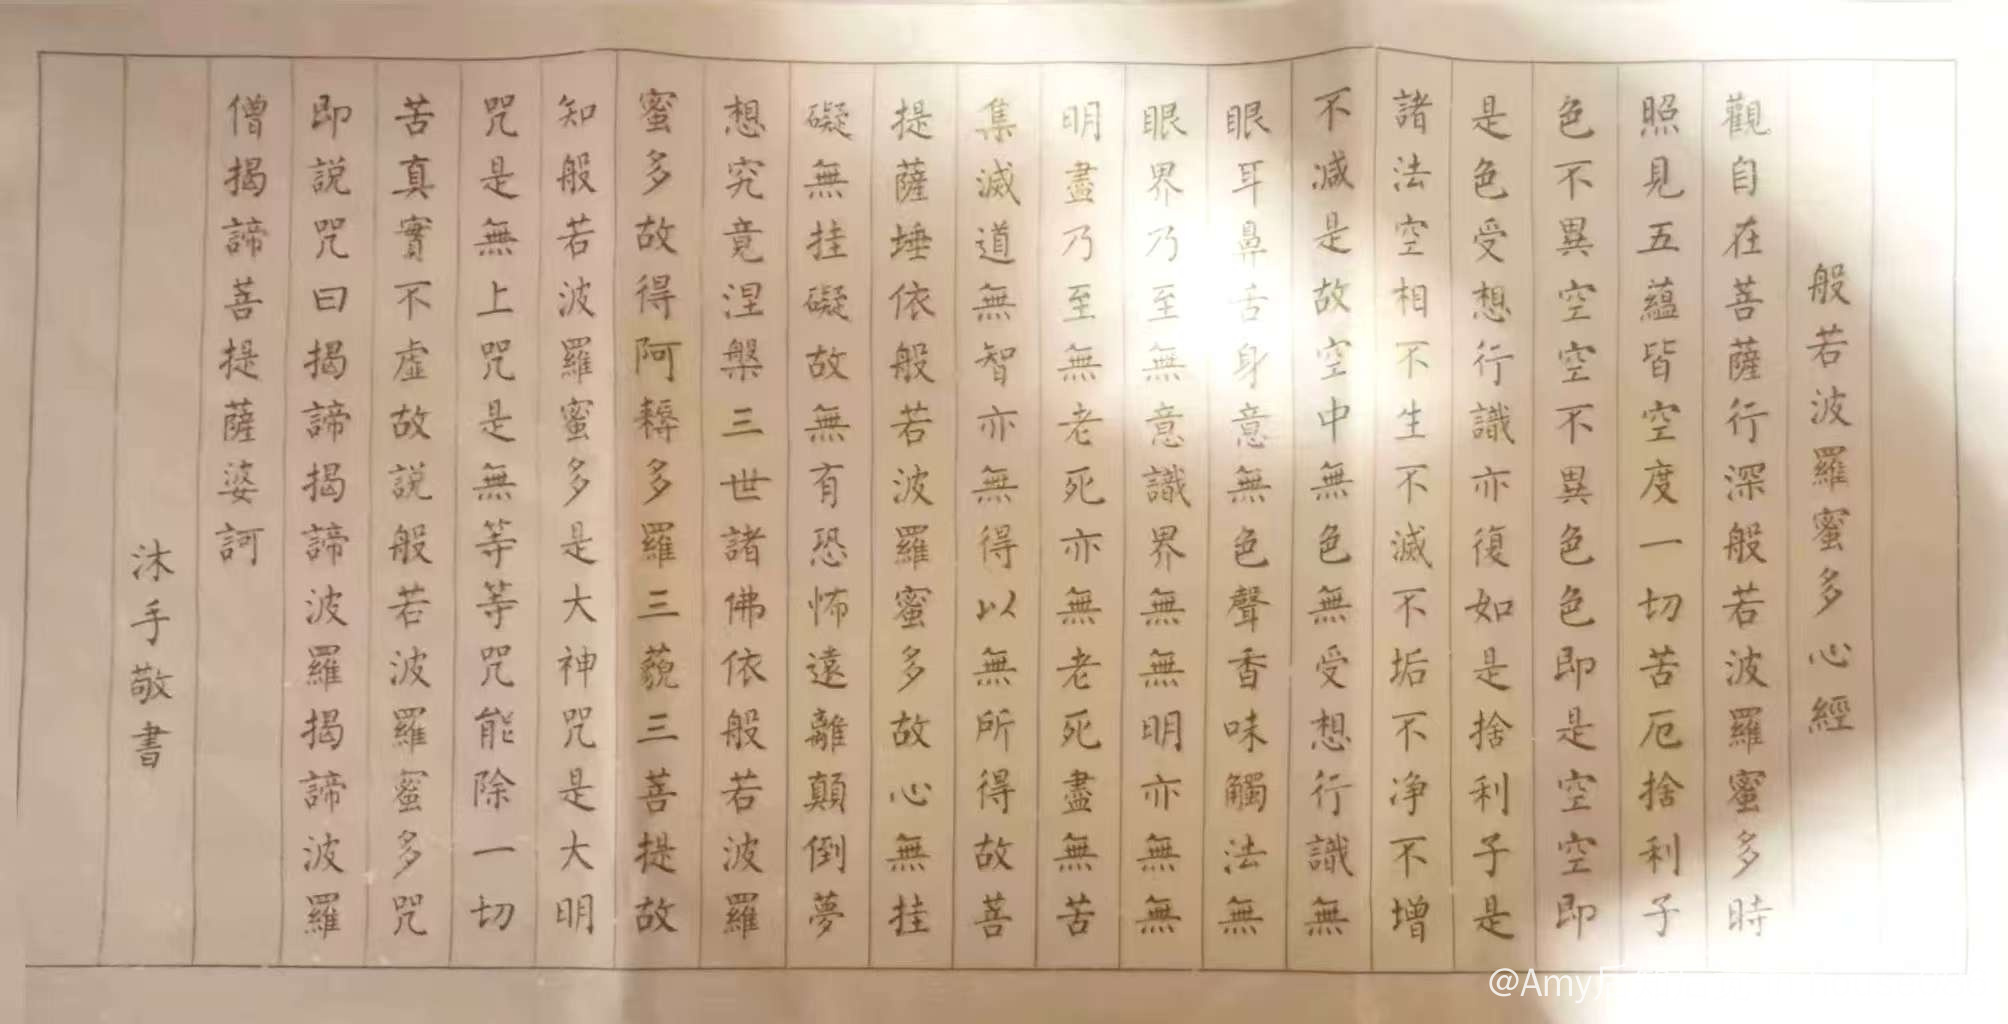 般若波羅蜜多心經
觀自在菩薩行深般若波羅蜜多時
照見五蘊皆空度一切苦厄捨利子
色不異空空不異色色即是空空即
是色受想行識亦復如是捨利子是
諸法空相不生不滅不垢不净不增
不減是故空中無色無受想行識無
眼耳鼻舌身意無色聲香味觸法無
眼界乃至無意識界無無明亦無無
明盡乃至無老死亦無老死盡無苦
集滅道無智亦無得以無所得故菩
提薩埵依般若波羅蜜多故心無挂
礙無挂礙故無有恐怖遠離顛倒夢
想究竟涅槃三世諸佛依般若波羅
蜜多故得阿耨多羅三藐三菩提故
知般若波羅蜜多是大神咒是大明
咒是無上咒是無等等咒能除一切
苦真實不虛故説般若波羅蜜多咒
即説咒曰揭諦揭諦波羅揭諦波羅
僧揭諦菩提薩婆訶
沐手敬書
@Amy